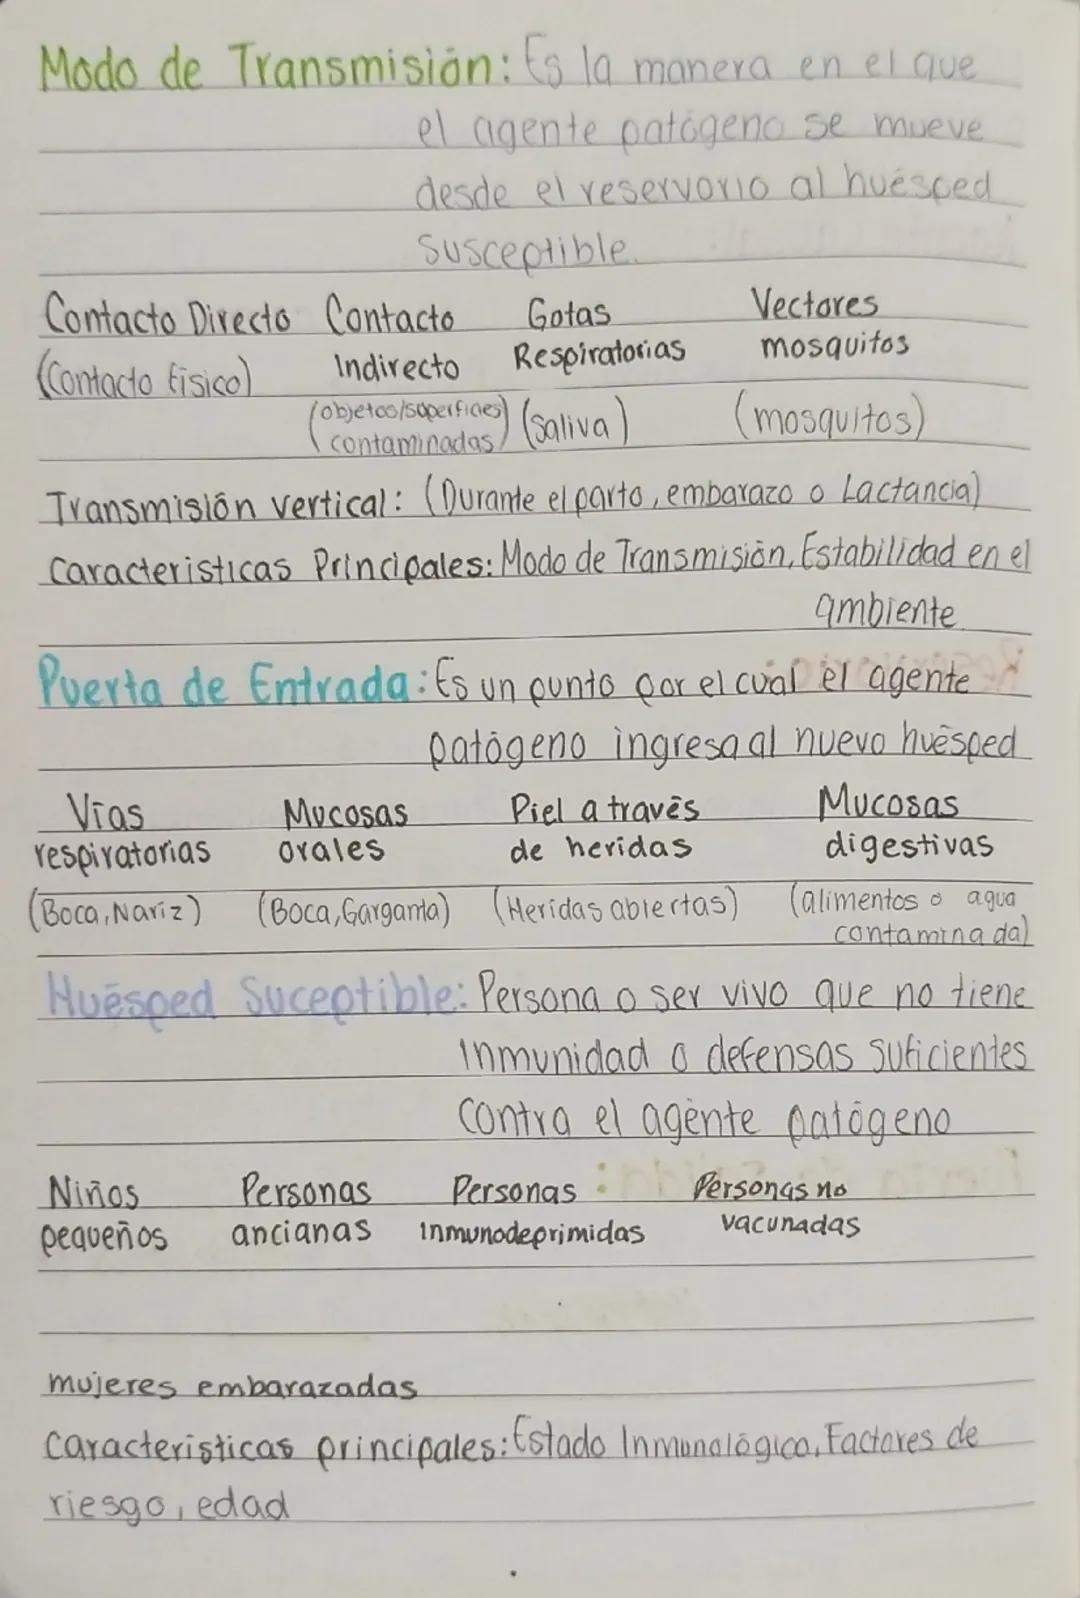 Modo de Transmisión: Es la manera en el que
el agente patógeno se mueve
desde el reservorio al huésped
susceptible.
Contacto Directo Contacto Gotas Vectores
(Contacto físico) Indirecto Respiratorias mosquitos
(objetos/superficies contaminadas) (saliva) (mosquitos)
Transmisión vertical: (Durante el parto, embarazo o Lactancia)
Caracteristicas Principales: Modo de Transmisión, Estabilidad en el
ambiente
Puerta de Entrada: Es un punto por el cual el agente
patógeno ingresa al nuevo huésped
Vías Mucosas Piel a través Mucosas
respiratorias orales de heridas digestivas
(Boca, Nariz) (Boca, Garganta) (Heridas abiertas) (alimentos o agua
contaminada)
Huésped Suceptible: Persona o ser vivo que no tiene
Inmunidad o defensas suficientes
contra el agente patógeno
Niños Personas Personas : Personas no
pequeños ancianas inmunodeprimidas vacunadas
mujeres embarazadas
Características principales: Estado Inmunológico, Factores de
riesgo, edad